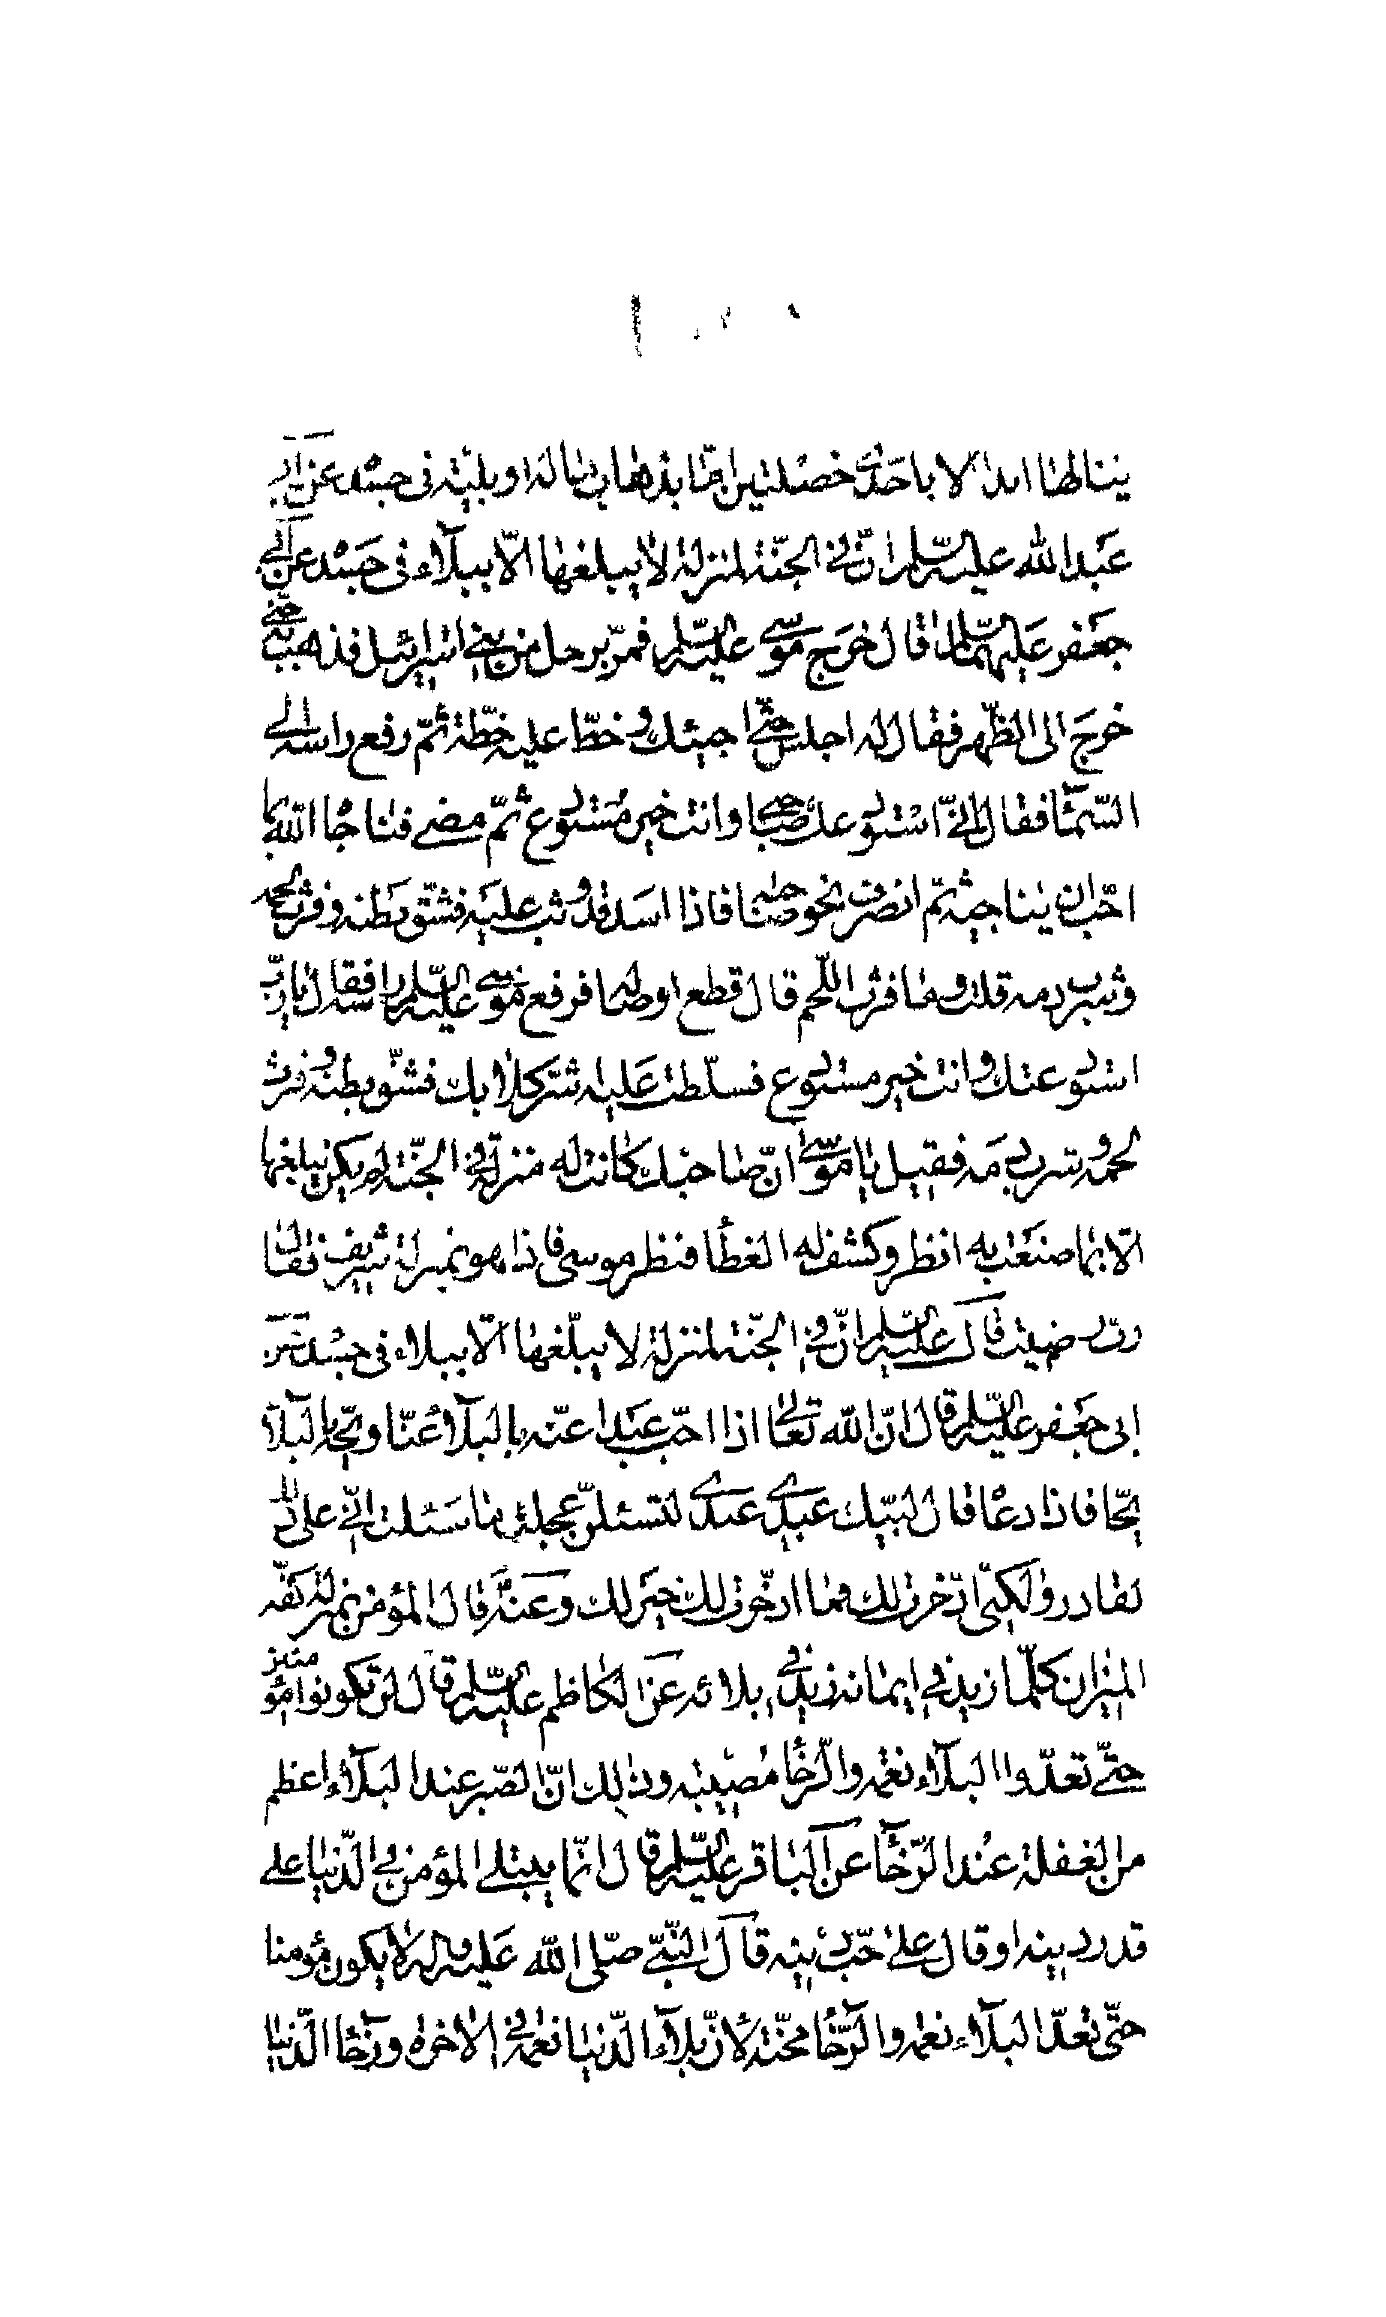 ينالها ابدا الا باحدى خصلتين اما بذهاب ماله او بليّة فى جسده عن ابى
عبد الله عليه السلم ان فى الجنّة لمنزلة لا يبلغها الّا ببلآء فى جسده عن ابى
جعفر عليهما السلم قال خرج موسى عليه السلم فمرّ برجل من بنى اسرائيل فذهب به حتى
خرج الى الظهر فقال له اجلس حتى اجيئك وخطّ عليه خطّة ثمّ رفع راسه الى
السّماء فقال انى استودعك صاحبى وانت خير مستودع ثمّ مضى فناجاه الله بما
احبّ ان يناجيه ثمّ انصرف نحو صاحبه فاذا اسد قد وثب عليه فشقّ بطنه وفرث لحمه
وشرب دمه قلت وما فرث اللّحم قال قطع اوصاله فرفع موسى عليه السّلم راسه فقال يا ربّ
استودعتك وانت خير مستودع فسلّطت عليه شرّ كلابك فشقّ بطنه وفرث
لحمه وشرب دمه فقيل يا موسى انّ صاحبك كانت له منزلة فى الجنّة لم يكن يبلغها
الّا بما صنعت به انظر وكشف له الغطأ فنظر موسى فاذا هو بمنزلة شريف فقال
رب رضيت قال عليه السّلم انّ فى الجنّة لمنزلة لا يبلّغها الّا ببلاء فى جسد عن
ابى جعفر عليه السّلم قال انّ الله تعالى اذا احبّ عبدا غتّه بالبلآء غتّا وثجّه بالبلآء
ثجّا فاذا دعا قال لبّيك عبدى عبدى لئن عجلت ما سئلت انّى على ذلك
لقادر ولكنّى ادّخرت لك فما ادّخرت لك خير لك وعنه قال المؤمن بمنزلة كفّه
الميزان كلّما زيد فى ايمانه زيد فى بلائه عن الكاظم عليه السّلم قال لن تكونوا مؤمنين
حتّى تعدّوا البلآء نعمة والرّخأ مصيبة وذلك انّ الصّبر عند البلآء اعظم
من الغفلة عند الرّخآء عن الباقر عليه السّلم قال انّما يبتلى المؤمن فى الدّنيا على
قدر دينه او قال على حبّ دينه قال النّبى صلّى الله عليه واله لا يكون مؤمنا
حتّى تعدّ البلآء نعمة والرّخأ محنة لانّ بلآء الدّنيا نعمة فى الاخرة ورخأ الدّنيا